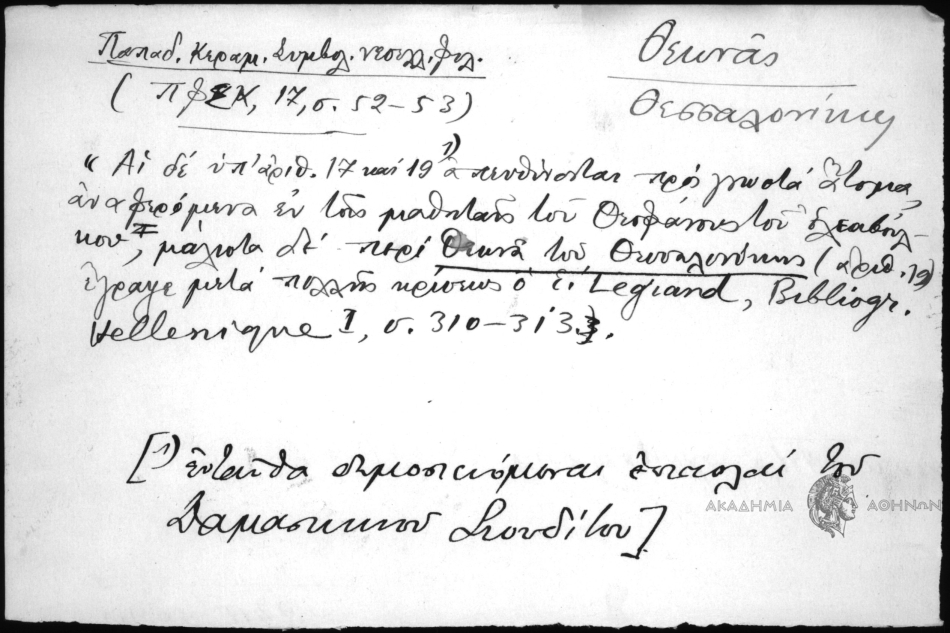 Παπαδ. Κεραμ. Συμβολ. νεοελλ. φιλ.
Θεωνᾶς
(ΠΦΣΚ, 17, σ. 52–53)
Θεσσαλονίκης
"Αἱ δέ ὑπ' ἀριθ. 17 καί 19 1) ἀπευθύνονται πρός γνωστά ἄτομα,
ἀναφερόμενα ἐν τοῖς μαθηταῖς τοῦ Θεοφάνους τοῦ Ἐλεαβούλ-
κου, μάλιστα δέ περί Θεωνᾶ τοῦ Θεσσαλονίκης (ἀριθ. 19)
ἔγραψε μετά πολλῆς κρίσεως ὁ E. Legrand, Bibliogr.
Hellenique I, σ. 310–313.
[1) ἐνταῦθα δημοσιευόμεναι ἐπιστολαί τοῦ
Δαμασκηνοῦ Στουδίτου]
ΑΚΑΔΗΜΙΑ ΑΘΗΝΩΝ